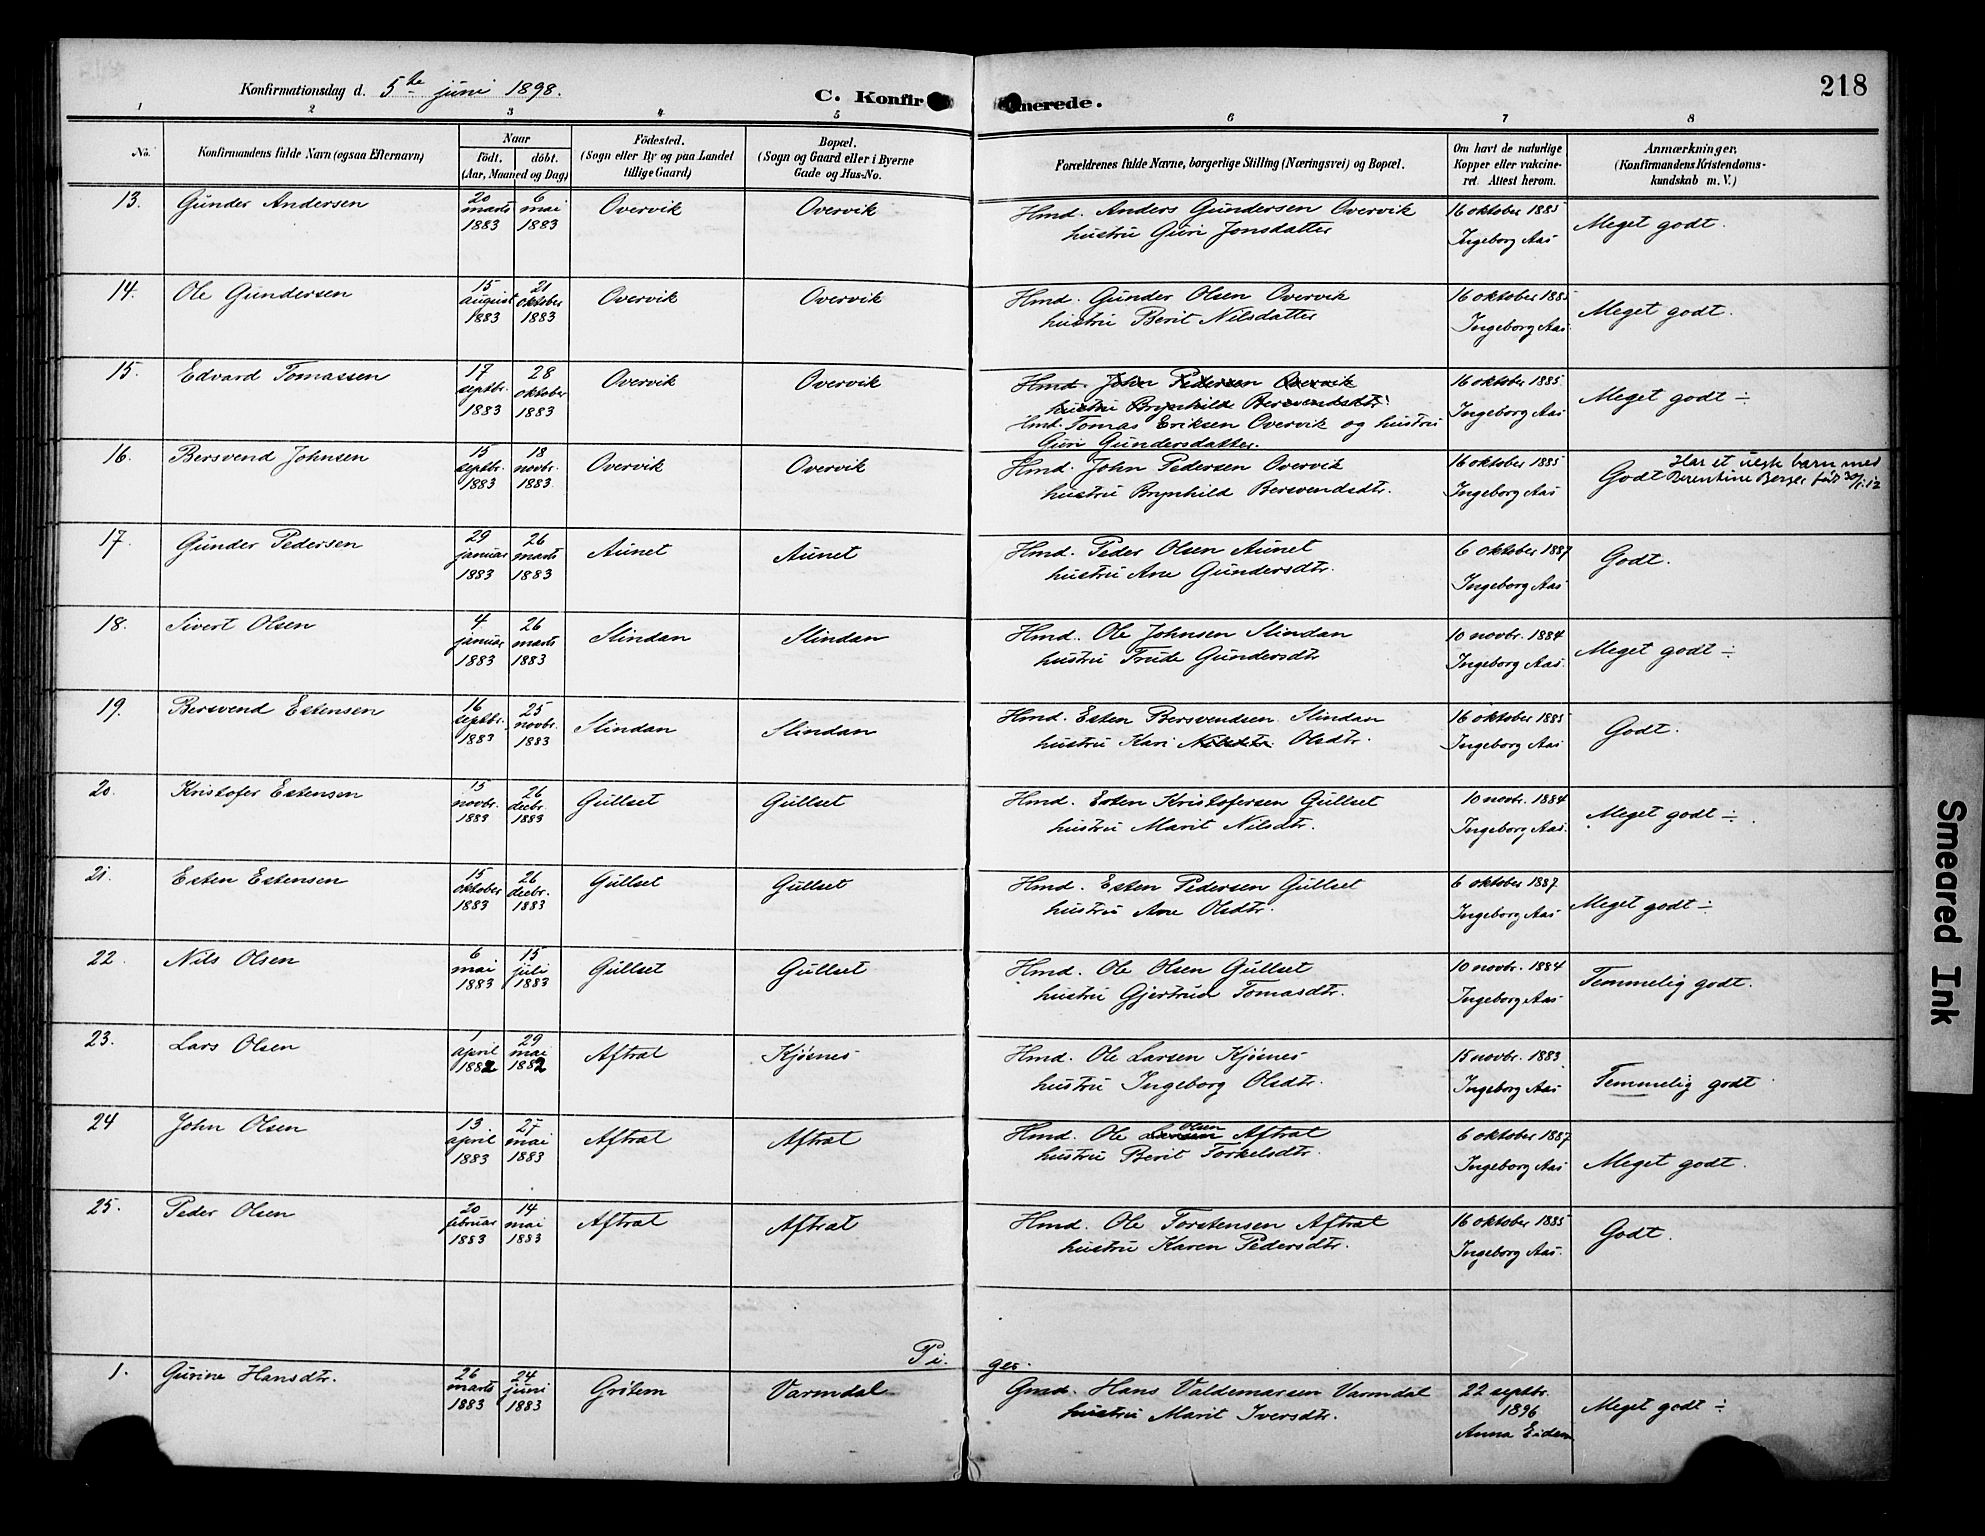 Konfirmationsdag d. 5te juni 1898.
C. Konfirmerede.
218
1 2 3 4 5 6 7 8
No.
Konfirmandens fulde Navn (ogsaa Efternavn)
Naar
födt. döbt.
(Aar, Maaned og Dag)
Födested.
(Sogn eller By og paa Landet
tillige Gaard)
Bopæl.
(Sogn og Gaard eller i Byerne
Gade og Hus-No.
Forældrenes fulde Navne, borgerlige Stilling (Næringsvei) og Bopæl.
Om havt de naturlige
Kopper eller vakcine-
ret. Attest herom.
Anmærkninger,
(Konfirmandens Kristendoms-
kundskab m. V.)
13. Gunder Andersen 20 marts 1883 6 mai 1883 Overvik Overvik Hmd. Anders Gundersen Overvik
hustru Guri Jonsdatter 16 oktober 1885 Ingeborg Aas Meget godt.
14. Ole Gundersen 15 august 1883 21 oktober 1883 Overvik Overvik Hmd. Gunder Olsen Overvik
hustru Berit Nilsdatter 16 oktober 1885 Ingeborg Aas. Meget godt.
15. Edvard Tomassen 17 septbr. 1883 28 oktober 1883 Overvik Overvik Hmd. John Pedersen Overvik
hustru Brynhild Bersvendsdtr.
Hmd. Tomas Eriksen Overvik og hustru
Guri Gundersdatter. 16 oktober 1885 Ingeborg Aas Meget godt ÷
16. Bersvend Johnsen 15 septbr. 1883 18 novbr. 1883. Overvik Overvik Hmd. John Pedersen Overvik
hustru Brynhild Bersvendsdtr. 16 oktober 1885 Ingeborg Aas Godt
Har et uegte barn med
Berentine Berge, født
17. Gunder Pedersen 29 januar 1883 26 marts 1883 Aunet Aunet Hmd. Peder Olsen Aunet
hustru Ane Gundersdtr. 6 oktober 1887 Ingeborg Aas Godt.
18. Sivert Olsen 4 januar 1883 26 marts 1883 Slindan Slindan Hmd. Ole Johnsen Slindan
hustru Trude Gundersdtr 10 novbr. 1884 Ingeborg Aas. Meget godt ÷
19. Bersvend Estensen 16 septbr. 1883 25 novbr. 1883 Slindan Slindan Hmd. Esten Bersvendsen Slindan
hustru Kari Nilsdtr. Olsdtr. 16 oktober 1885 Ingeborg Aas Godt.
20. Kristofer Estensen 15 novbr. 1883 26 decbr. 1883 Gullset Gullset Hmd. Esten Kristofersen Gullset
hustru Marit Nilsdtr. 10 novbr. 1884 Ingeborg Aas. Meget godt ÷
21. Esten Estensen 15 oktober 1883 26 decbr. 1883 Gullset Gullset Hmd. Esten Pedersen Gullset
hustru Ane Olsdtr. 6 oktober 1887 Ingeborg Aas Meget godt ÷
22. Nils Olsen 6 mai 1883 15 juli 1883 Gullset Gullset Hmd. Ole Olsen Gullset
hustru Gjertrud Tomasdtr. 10 novbr. 1884 Ingeborg Aas Temmelig godt.
23. Lars Olsen 1 april 1882 29 mai 1882 Aftret Kjösnes Hmd. Ole Larsen Kjösnes
hustru Ingeborg Olsdtr. 15 novbr. 1883 Ingeborg Aas Temmelig godt
24 John Olsen 13 april 1883 27 mai 1883 Aftrat Aftrat Hmd. Ole Larsen Olsen Aftrat
hustru Berit Torkelsdtr. 6 oktober 1887 Ingeborg Aas Meget godt.
25. Peder Olsen 20 februar 1883 14 mai 1883 Aftrat Aftrat Hmd. Ole Torstensen Aftrat
hustru Karen Pedersdtr. 16 oktober 1885 Ingeborg Aas. Godt.
Piger.
1. Gurine Hansdtr. 26 marts 1883 24 juni 1883 Grötem Varmdal Gmd. Hans Valdemarsen Varmdal
hustru Marit Iversdtr. 22 septbr. 1896 Anna Eidem Meget godt ÷
Smeared Ink